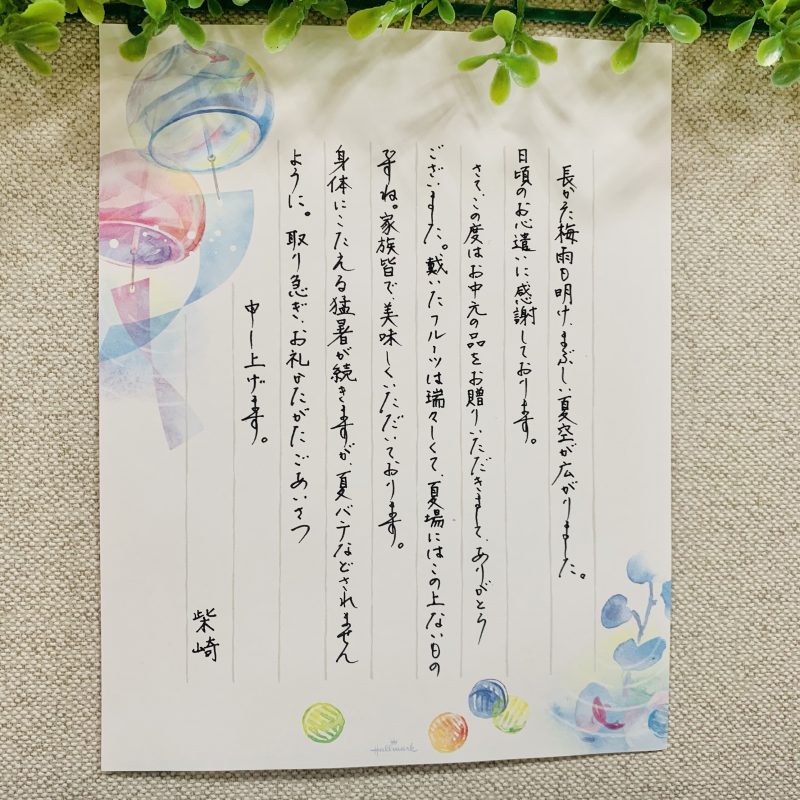 長かった梅雨も明け、まぶしい夏空が広がりました。
日頃のお心遣いに感謝しております。
さて、この度はお中元の品をお贈りいただきまして、ありがとう
ございました。戴いたフルーツは瑞々しくて、夏場にはこの上ないもの
ですね。家族皆で、美味しくいただいております。
身体にこたえる猛暑が続きますが、夏バテなどされません
ように。取り急ぎ、お礼かたがたごあいさつ
申し上げます。
柴崎
Hallmark